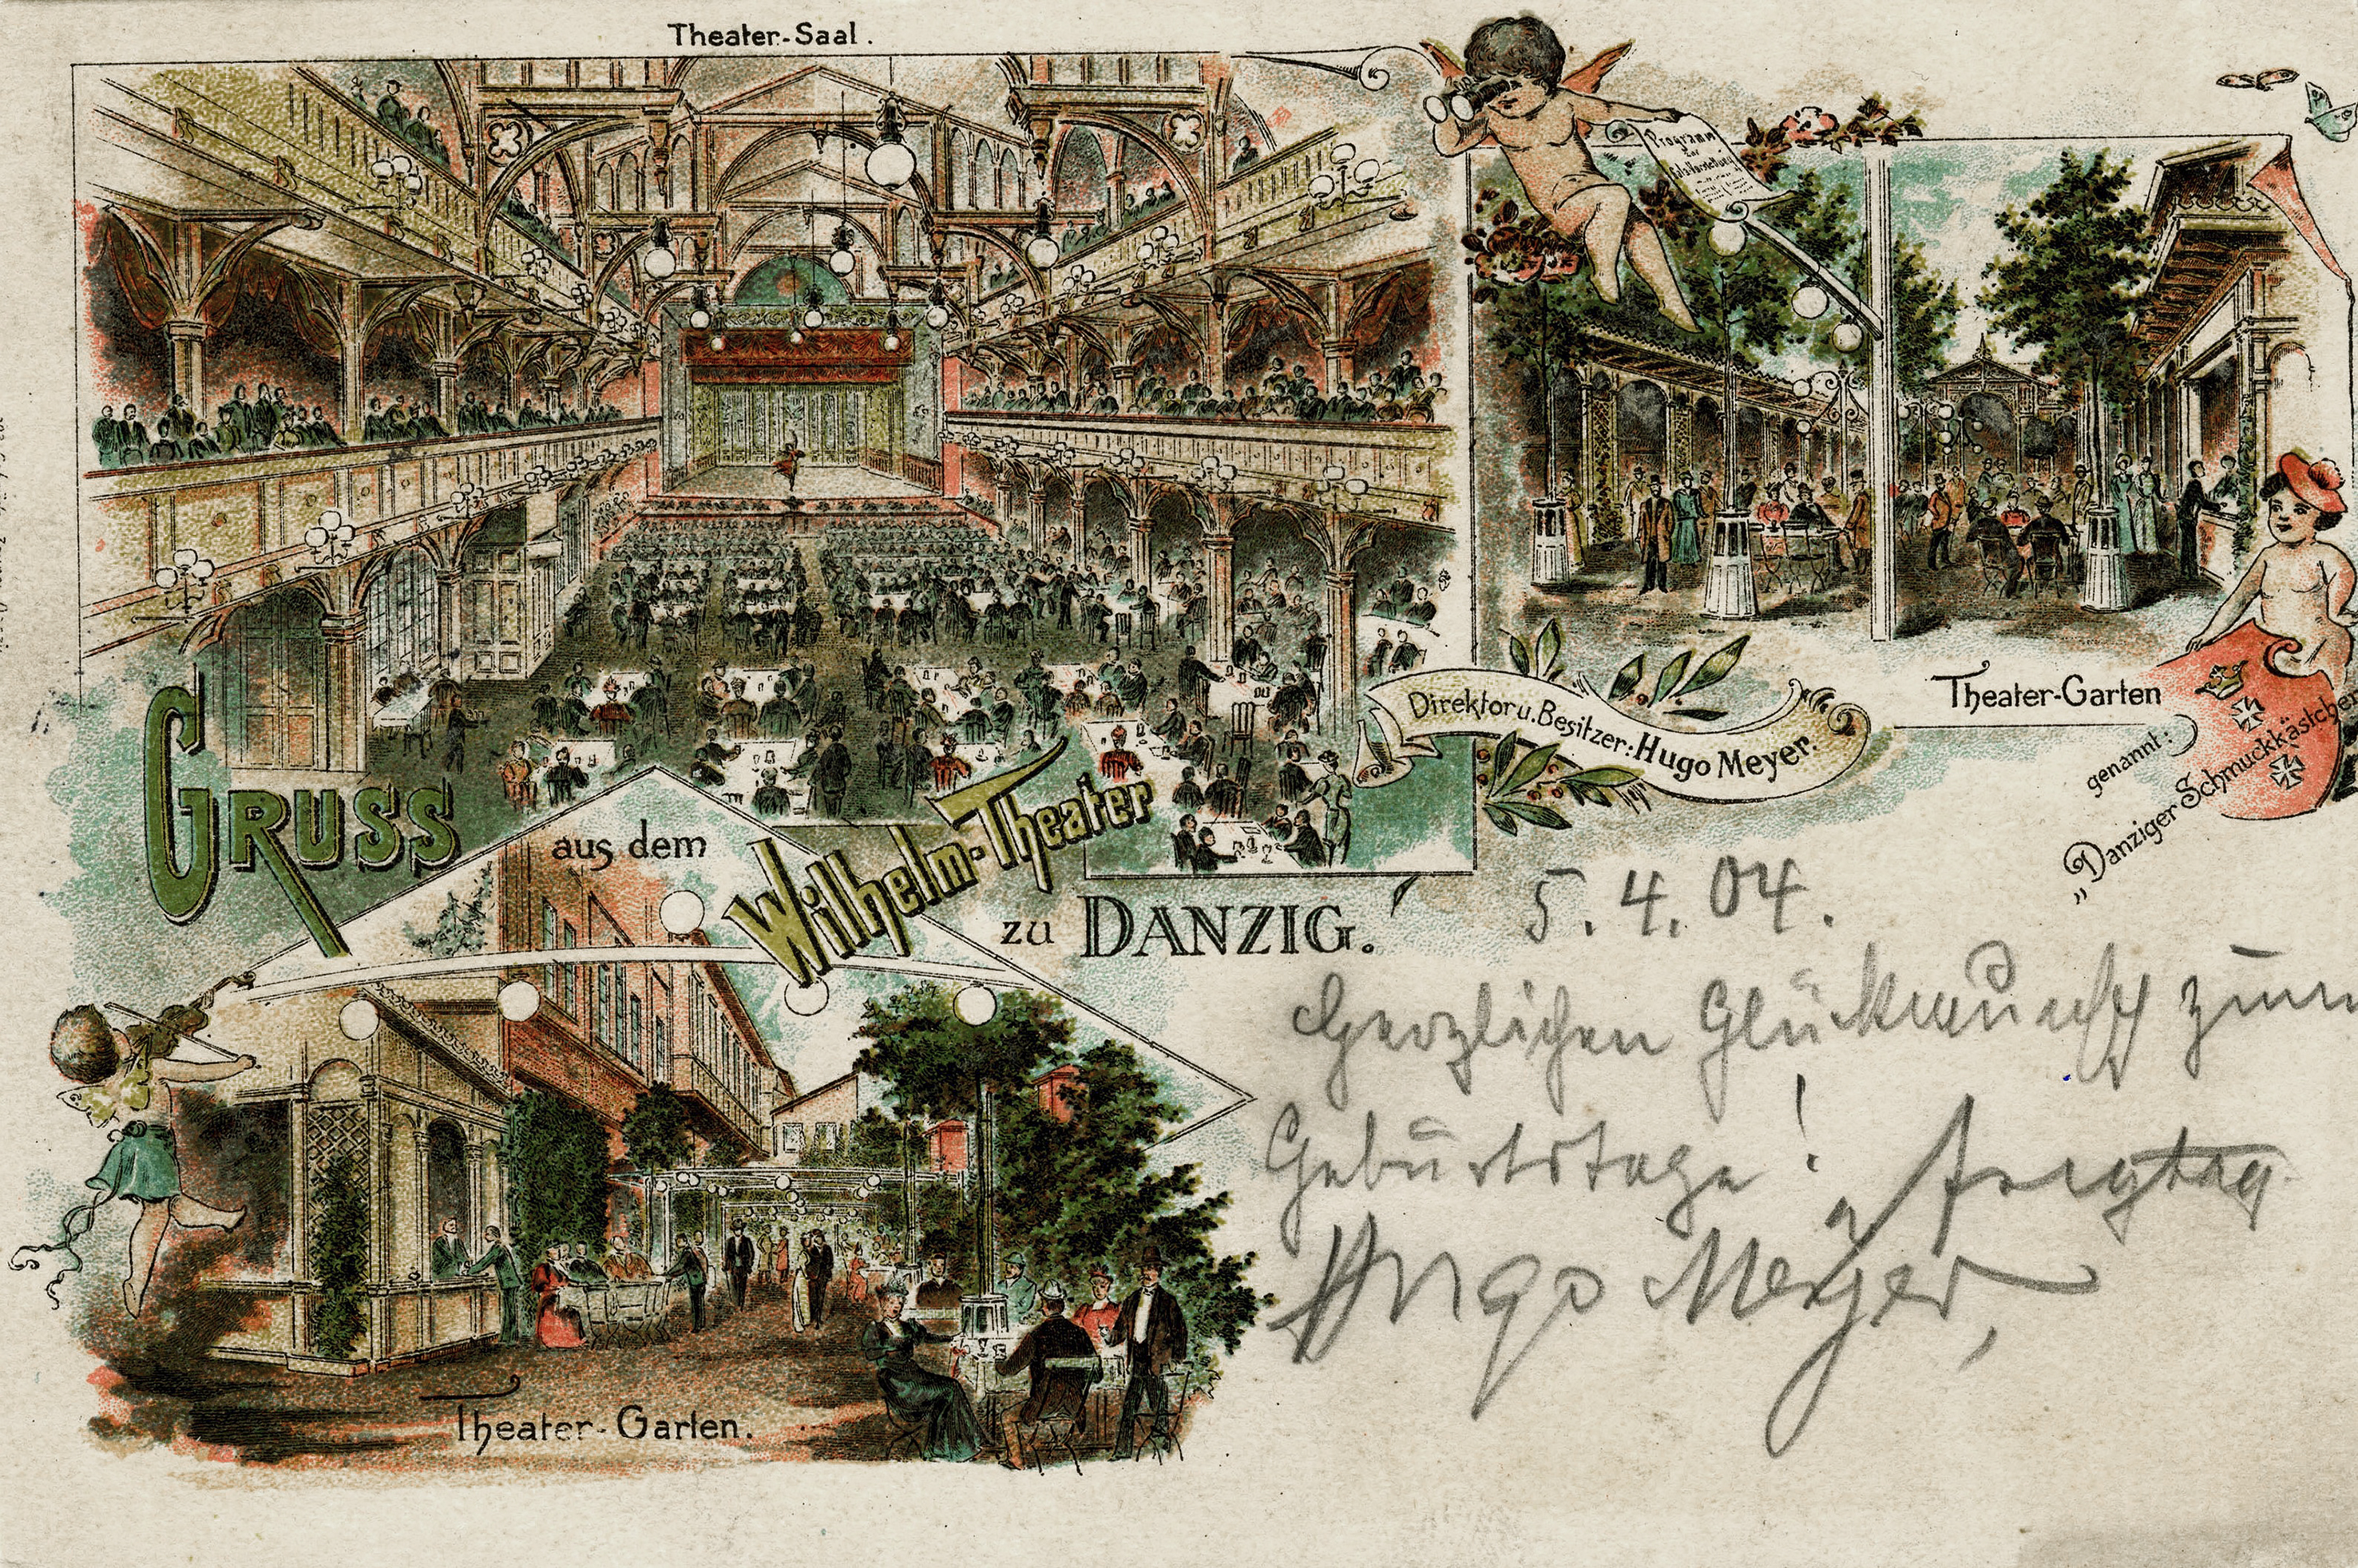 Theater-Saal.
Programm
zur
Gala-Vorstellung
GRUSS
aus dem
Wilhelm-Theater
zu DANZIG.
Direktor u. Besitzer: Hugo Meyer.
Theater-Garten
genannt:
„Danziger Schmuckkästchen
Theater-Garten.
5.4.04.
Herzlichen Glückwunsch zum
Geburtstage!
Hugo Meyer,